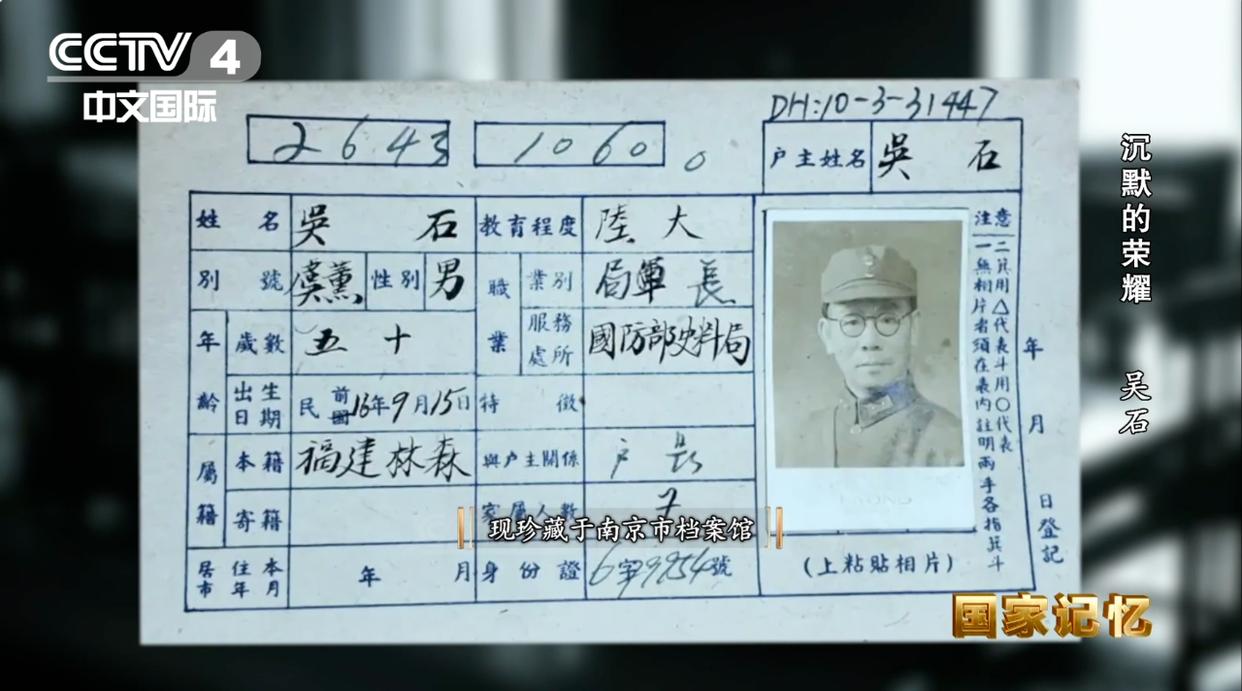 CCTV 4
中文国际
DH:10-3-31447
2643
1060
户主姓名 吳石
姓名 吳石 教育程度 陸大
別號 虞薰 性別 男 職業 業別 軍 局長
年齡 歲數 五十 服務處所 國防部史料局
出生日期 民前16年9月15日 特徵
屬籍 本籍 福建林森 與户主關係 户長
寄籍 家屬人數
居住本市年月 年 月 身份證 6字9954號
注意
一無相片者須在表內註明兩手各指箕斗
二箕用△代表斗用○代表
(上粘貼相片)
年 月 日登記
沉默的荣耀 吴石
现珍藏于南京市档案馆
国家记忆